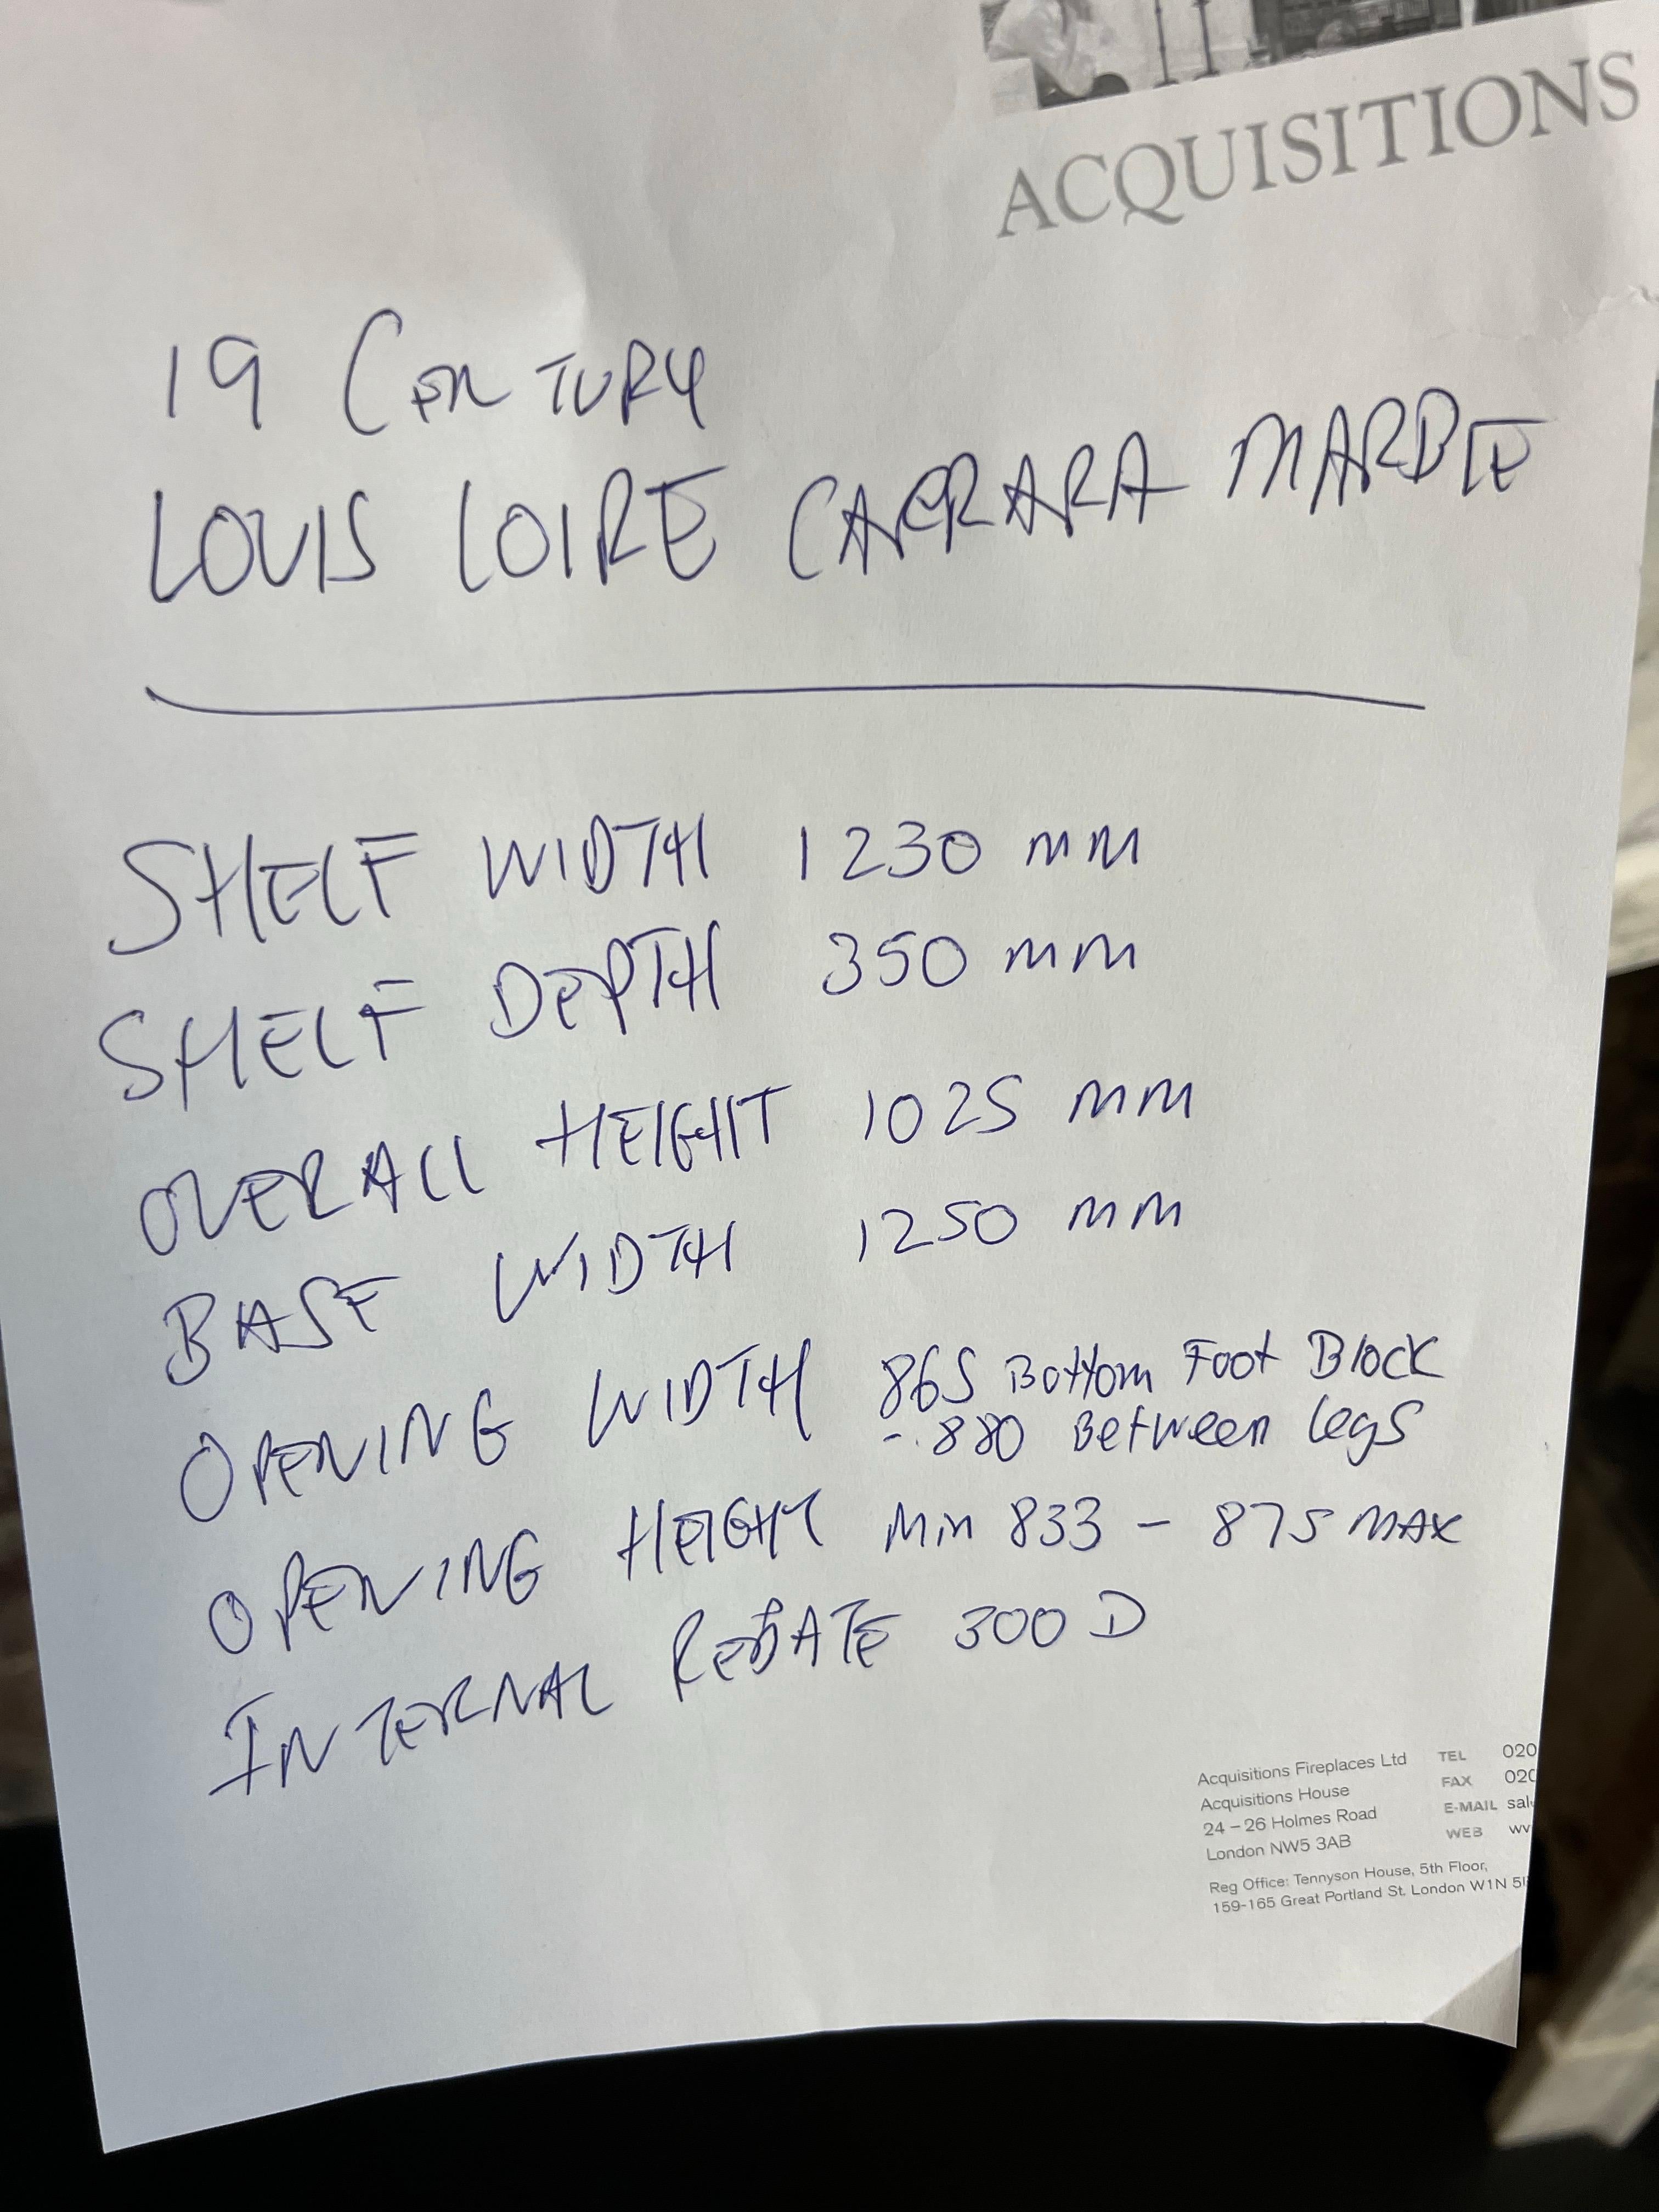 ACQUISITIONS
19 CENTURY
LOUIS LOIRE CARRARA MARBLE
SHELF WIDTH 1230 mm
SHELF DEPTH 350 mm
OVERALL HEIGHT 1025 mm
BASE WIDTH 1250 mm
OPENING WIDTH 865 Bottom Foot Block
- 880 Between legs
OPENING HEIGHT Min 833 - 875 MAX
INTERNAL REBATE 300 D
Acquisitions Fireplaces Ltd TEL 020
Acquisitions House FAX 020
24 – 26 Holmes Road E-MAIL sal
London NW5 3AB WEB
Reg Office: Tennyson House, 5th Floor,
159-165 Great Portland St. London W1N